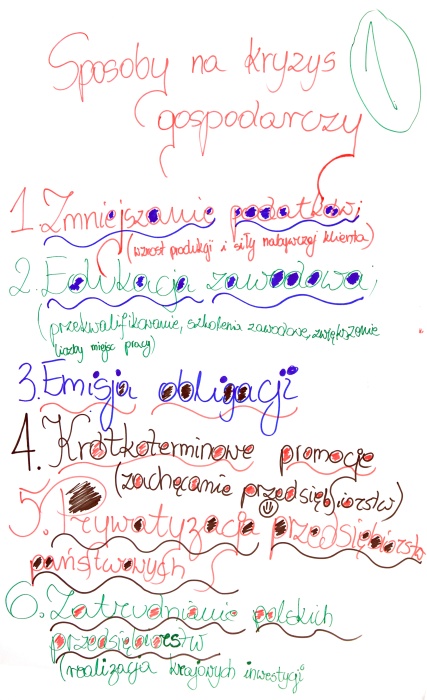 Sposoby na kryzys
gospodarczy
1
1. Zmniejszanie podatków;
(wzrost produkcji i siły nabywczej klienta)
2. Edukacja zawodowa;
(przekwalifikowanie, szkolenia zawodowe, zwiększenie
liczby miejsc pracy)
3. Emisja obligacji
4. Krótkoterminowe promocje
(zachęcanie przedsiębiorstw)
5. Prywatyzacja przedsiębiorstw
państwowych
6. Zatrudnianie polskich
przedsiębiorstw
(realizacja krajowych inwestycji